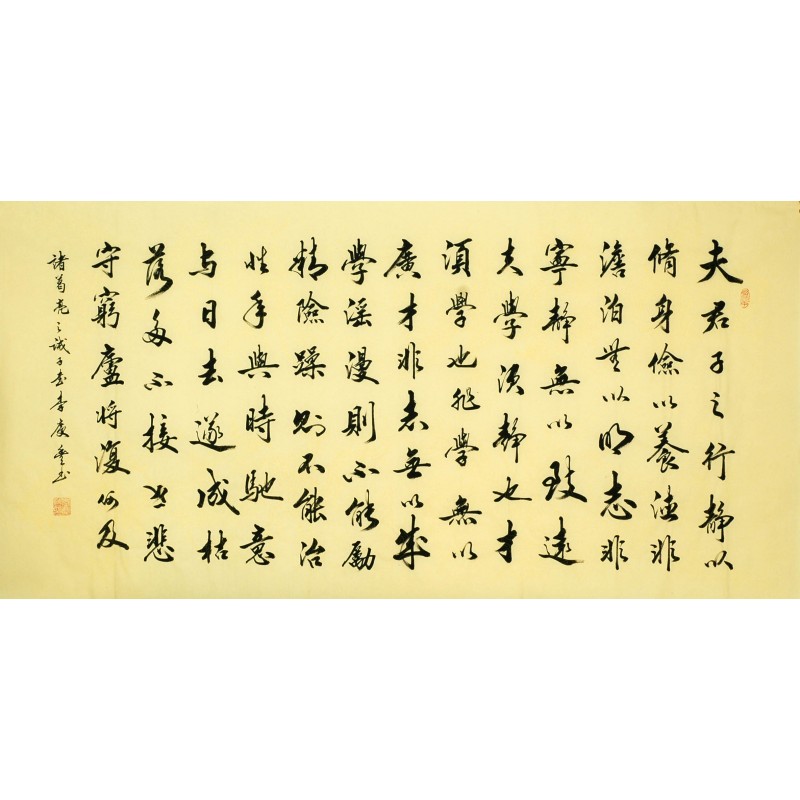 夫君子之行靜以
脩身儉以養德非
澹泊無以明志非
寧靜無以致遠
夫學須靜也才
須學也非學無以
廣才非志無以成
學滛漫則不能勵
精險躁則不能治
性年與時馳意
与日去遂成枯
落多不接世悲
守窮廬將復何及
諸葛亮之誡子書李慶书